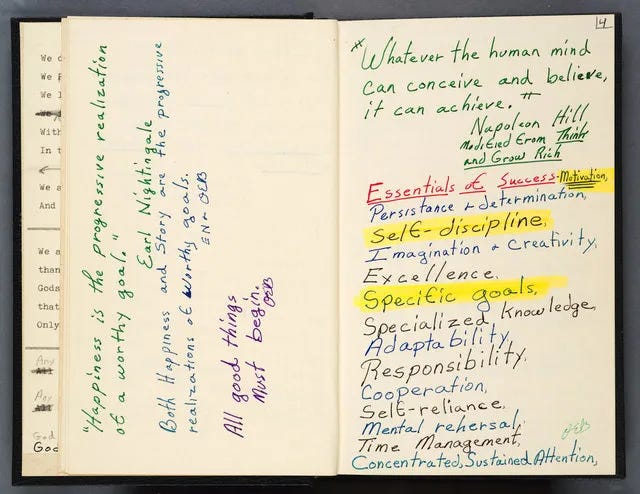 We
We
We
With
In t
We a
And
We a
than
Gods
that
Only
Any
All
Any
All
God
God
"Happiness is the progressive realization
of a worthy goal."
Earl Nightingale
Both Happiness and Story are the progressive
realizations of worthy goals.
EN & OEB
All good things
Must begin.
OEB
4
"Whatever the human mind
can conceive and believe,
it can achieve."
Napoleon Hill
Modified From Think
and Grow Rich
Essentials of Success-Motivation,
Persistance & determination,
Self-discipline,
Imagination & Creativity,
Excellence.
Specific goals,
Specialized Knowledge,
Adaptability,
Responsibility.
Cooperation,
Self-reliance.
Mental rehersal,
OEB
Time Management,
Concentrated, Sustained Attention,